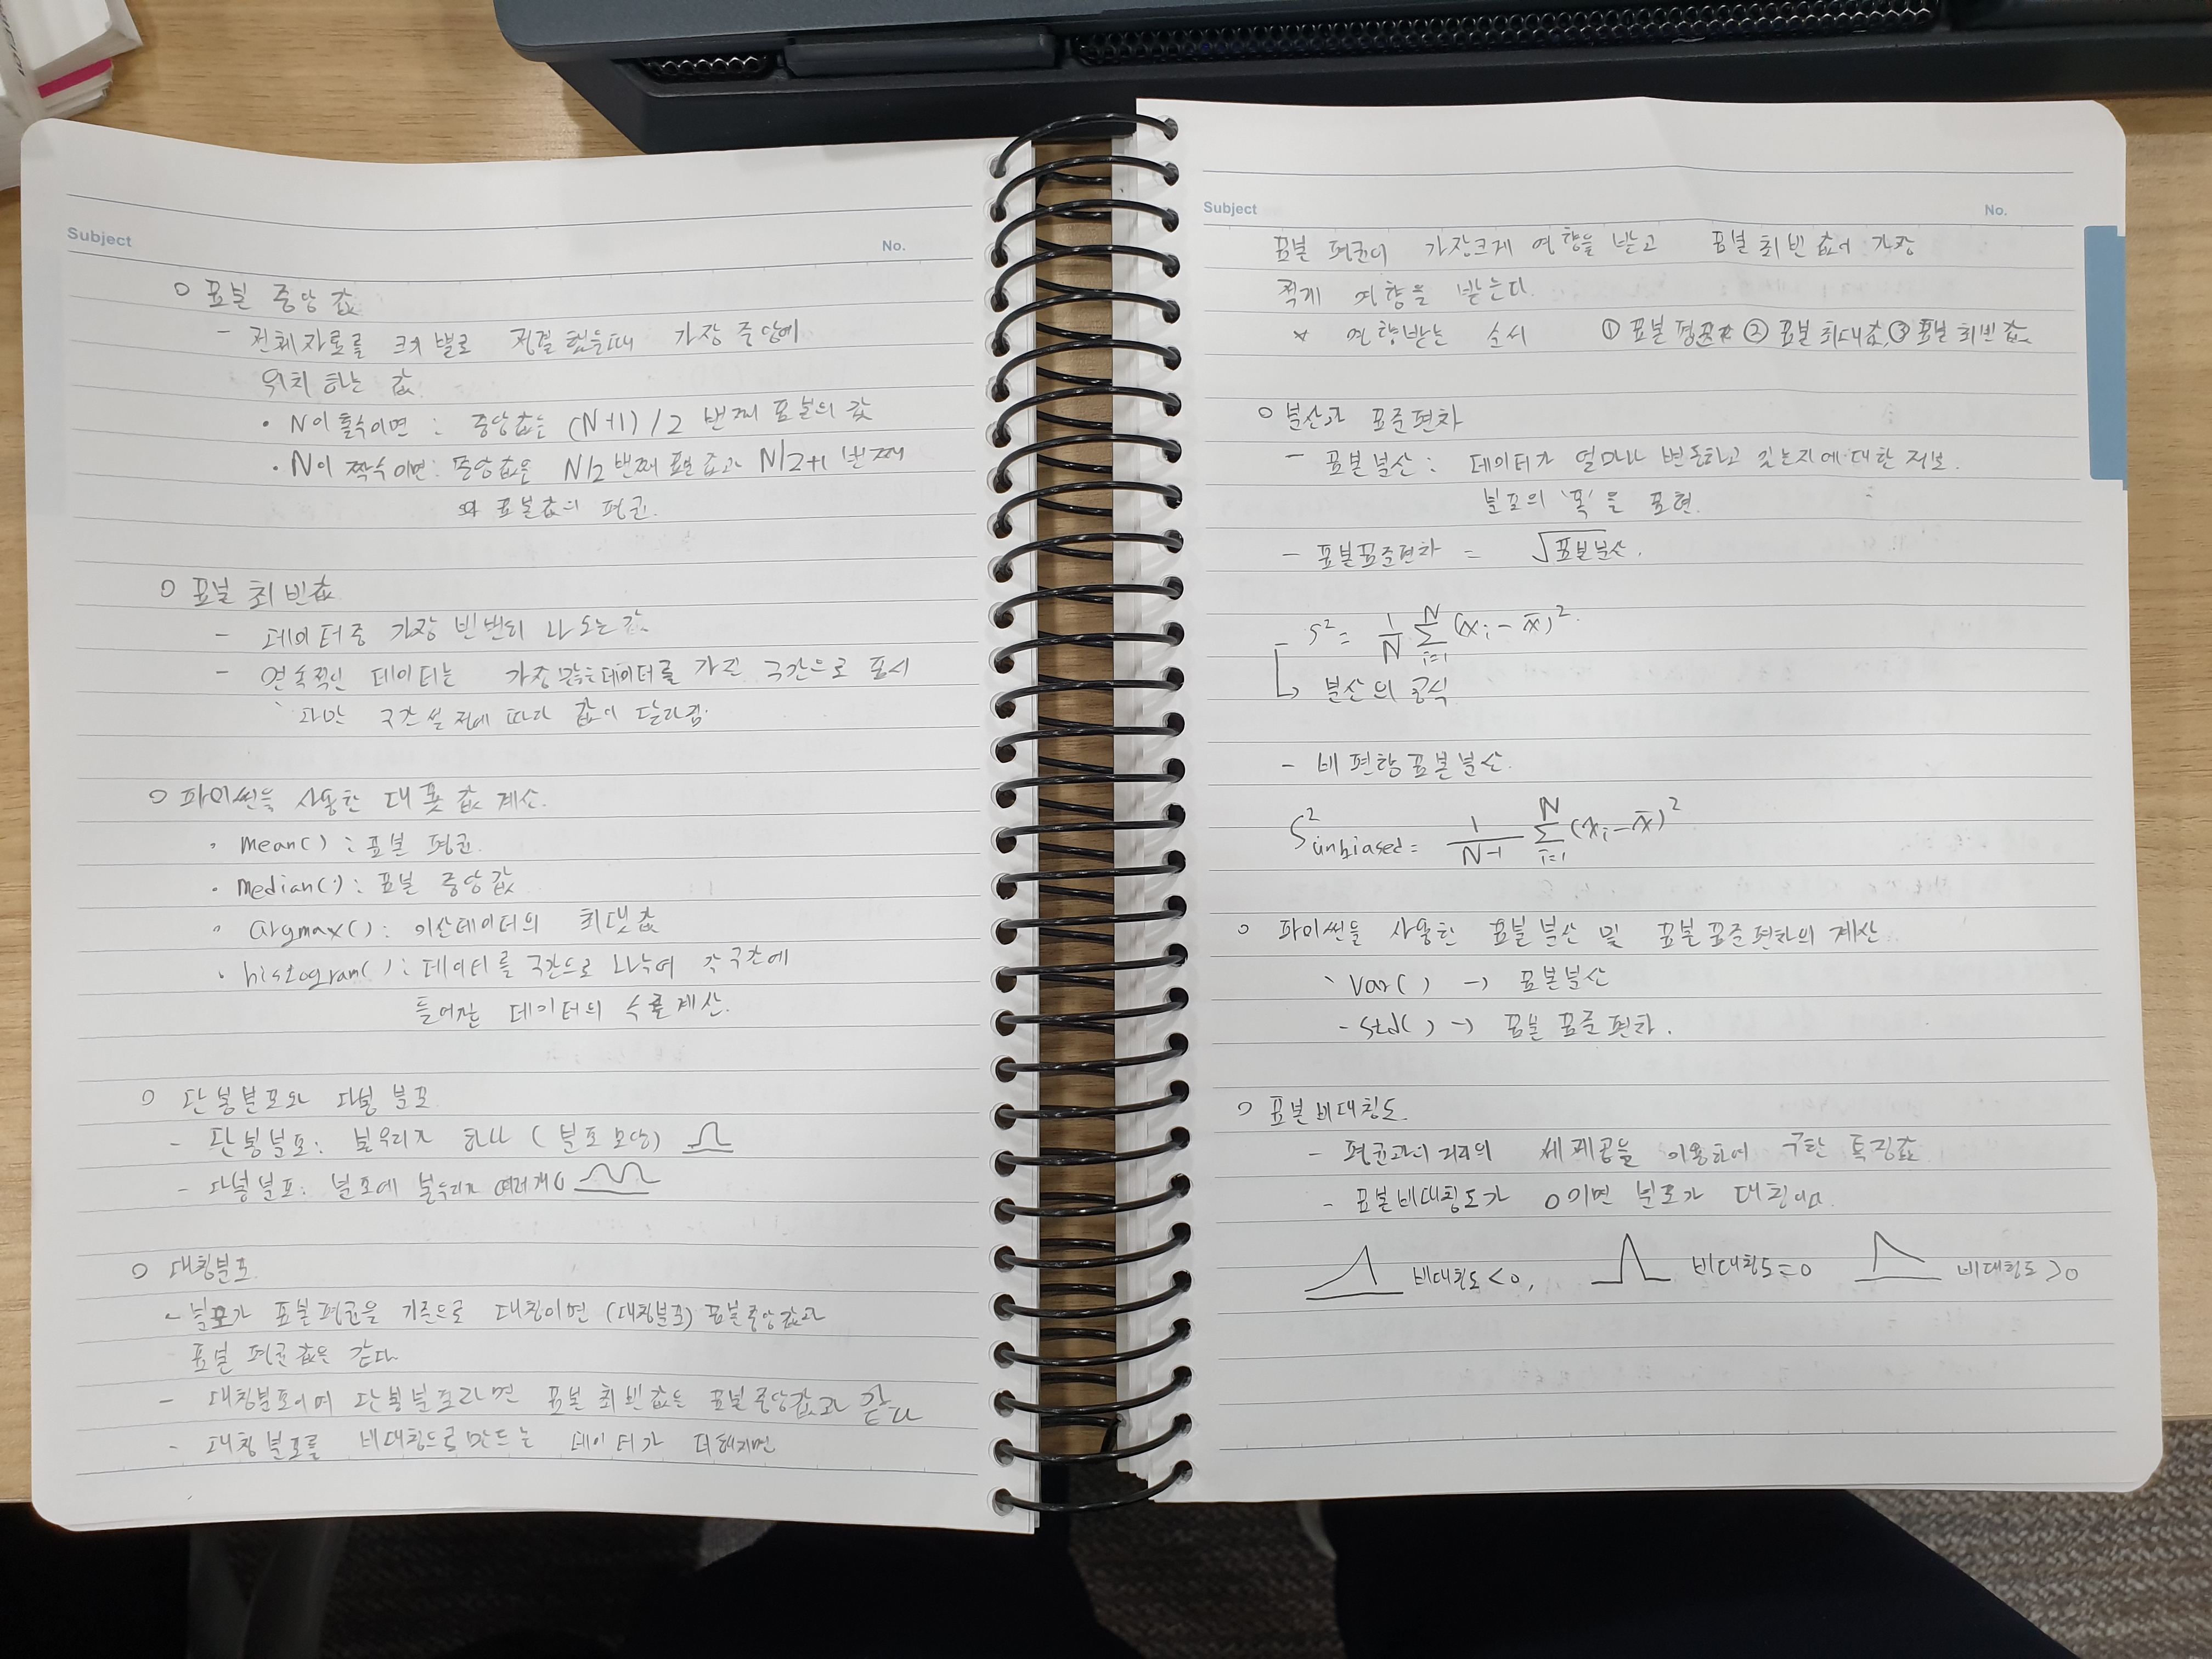 Subject No.
○ 표본 중앙값
- 전체자료를 크기 별로 정렬 했을때 가장 중앙에
위치 하는 값
· N이 홀수이면 : 중앙값은 (N+1)/2 번째 표본의 값
· N이 짝수이면: 중앙값은 N/2 번째 표본값과 N/2+1 번째
표본값의 평균.
○ 표본 최빈값
- 데이터중 가장 빈번히 나오는값
- 연속적인 데이터는 가장많은데이터를 가진 구간으로 표시
구간설정에 따라 값이 달라짐.
○ 파이썬을 사용한 대푯값 계산.
· mean() : 표본 평균.
· median() : 표본 중앙값
· argmax() : 이산데이터의 최댓값
· histogram() : 데이터를 구간으로 나누어 각구간에
들어가는 데이터의 수를계산.
○ 단봉분포와 다봉분포
- 단봉분포: 봉우리가 하나 (분포모양)
- 다봉분포: 분포에 봉우리가 여러개
○ 대칭분포
- 분포가 표본평균을 기준으로 대칭이면 (대칭분포) 표본중앙값과
표본 평균값은 같다
- 대칭분포이며 단봉분포라면 표본 최빈값은 표본중앙값과 같다
- 대칭분포를 비대칭으로만드는 데이터가 더해지면
Subject No.
표본 평균이 가장크게 영향을 받고 표본최빈값이 가장
적게 영향을 받는다.
* 영향받는 순서 ① 표본평균 ② 표본최대값,③ 표본최빈값.
○ 분산과 표준편차
- 표본분산 : 데이터가 얼마나 변동하고 있는지에대한 정보.
분포의 '폭'을 표현.
- 표본표준편차 = √표본분산.
- s² = 1/N Σ_{i=1}^{N} (x_i - x̄)².
↳ 분산의 공식
- 비편향표본분산.
S²unbiased = 1/(N-1) Σ_{i=1}^{N} (x_i - x̄)²
○ 파이썬을 사용한 표본분산 및 표본표준편차의 계산
- Var() → 표본분산
- Std() → 표본 표준편차.
○ 표본비대칭도.
- 평균과의 거리의 세제곱을 이용하여 구한 특징값
- 표본비대칭도가 0이면 분포가 대칭이다.
비대칭도<0, 비대칭도=0 비대칭도>0